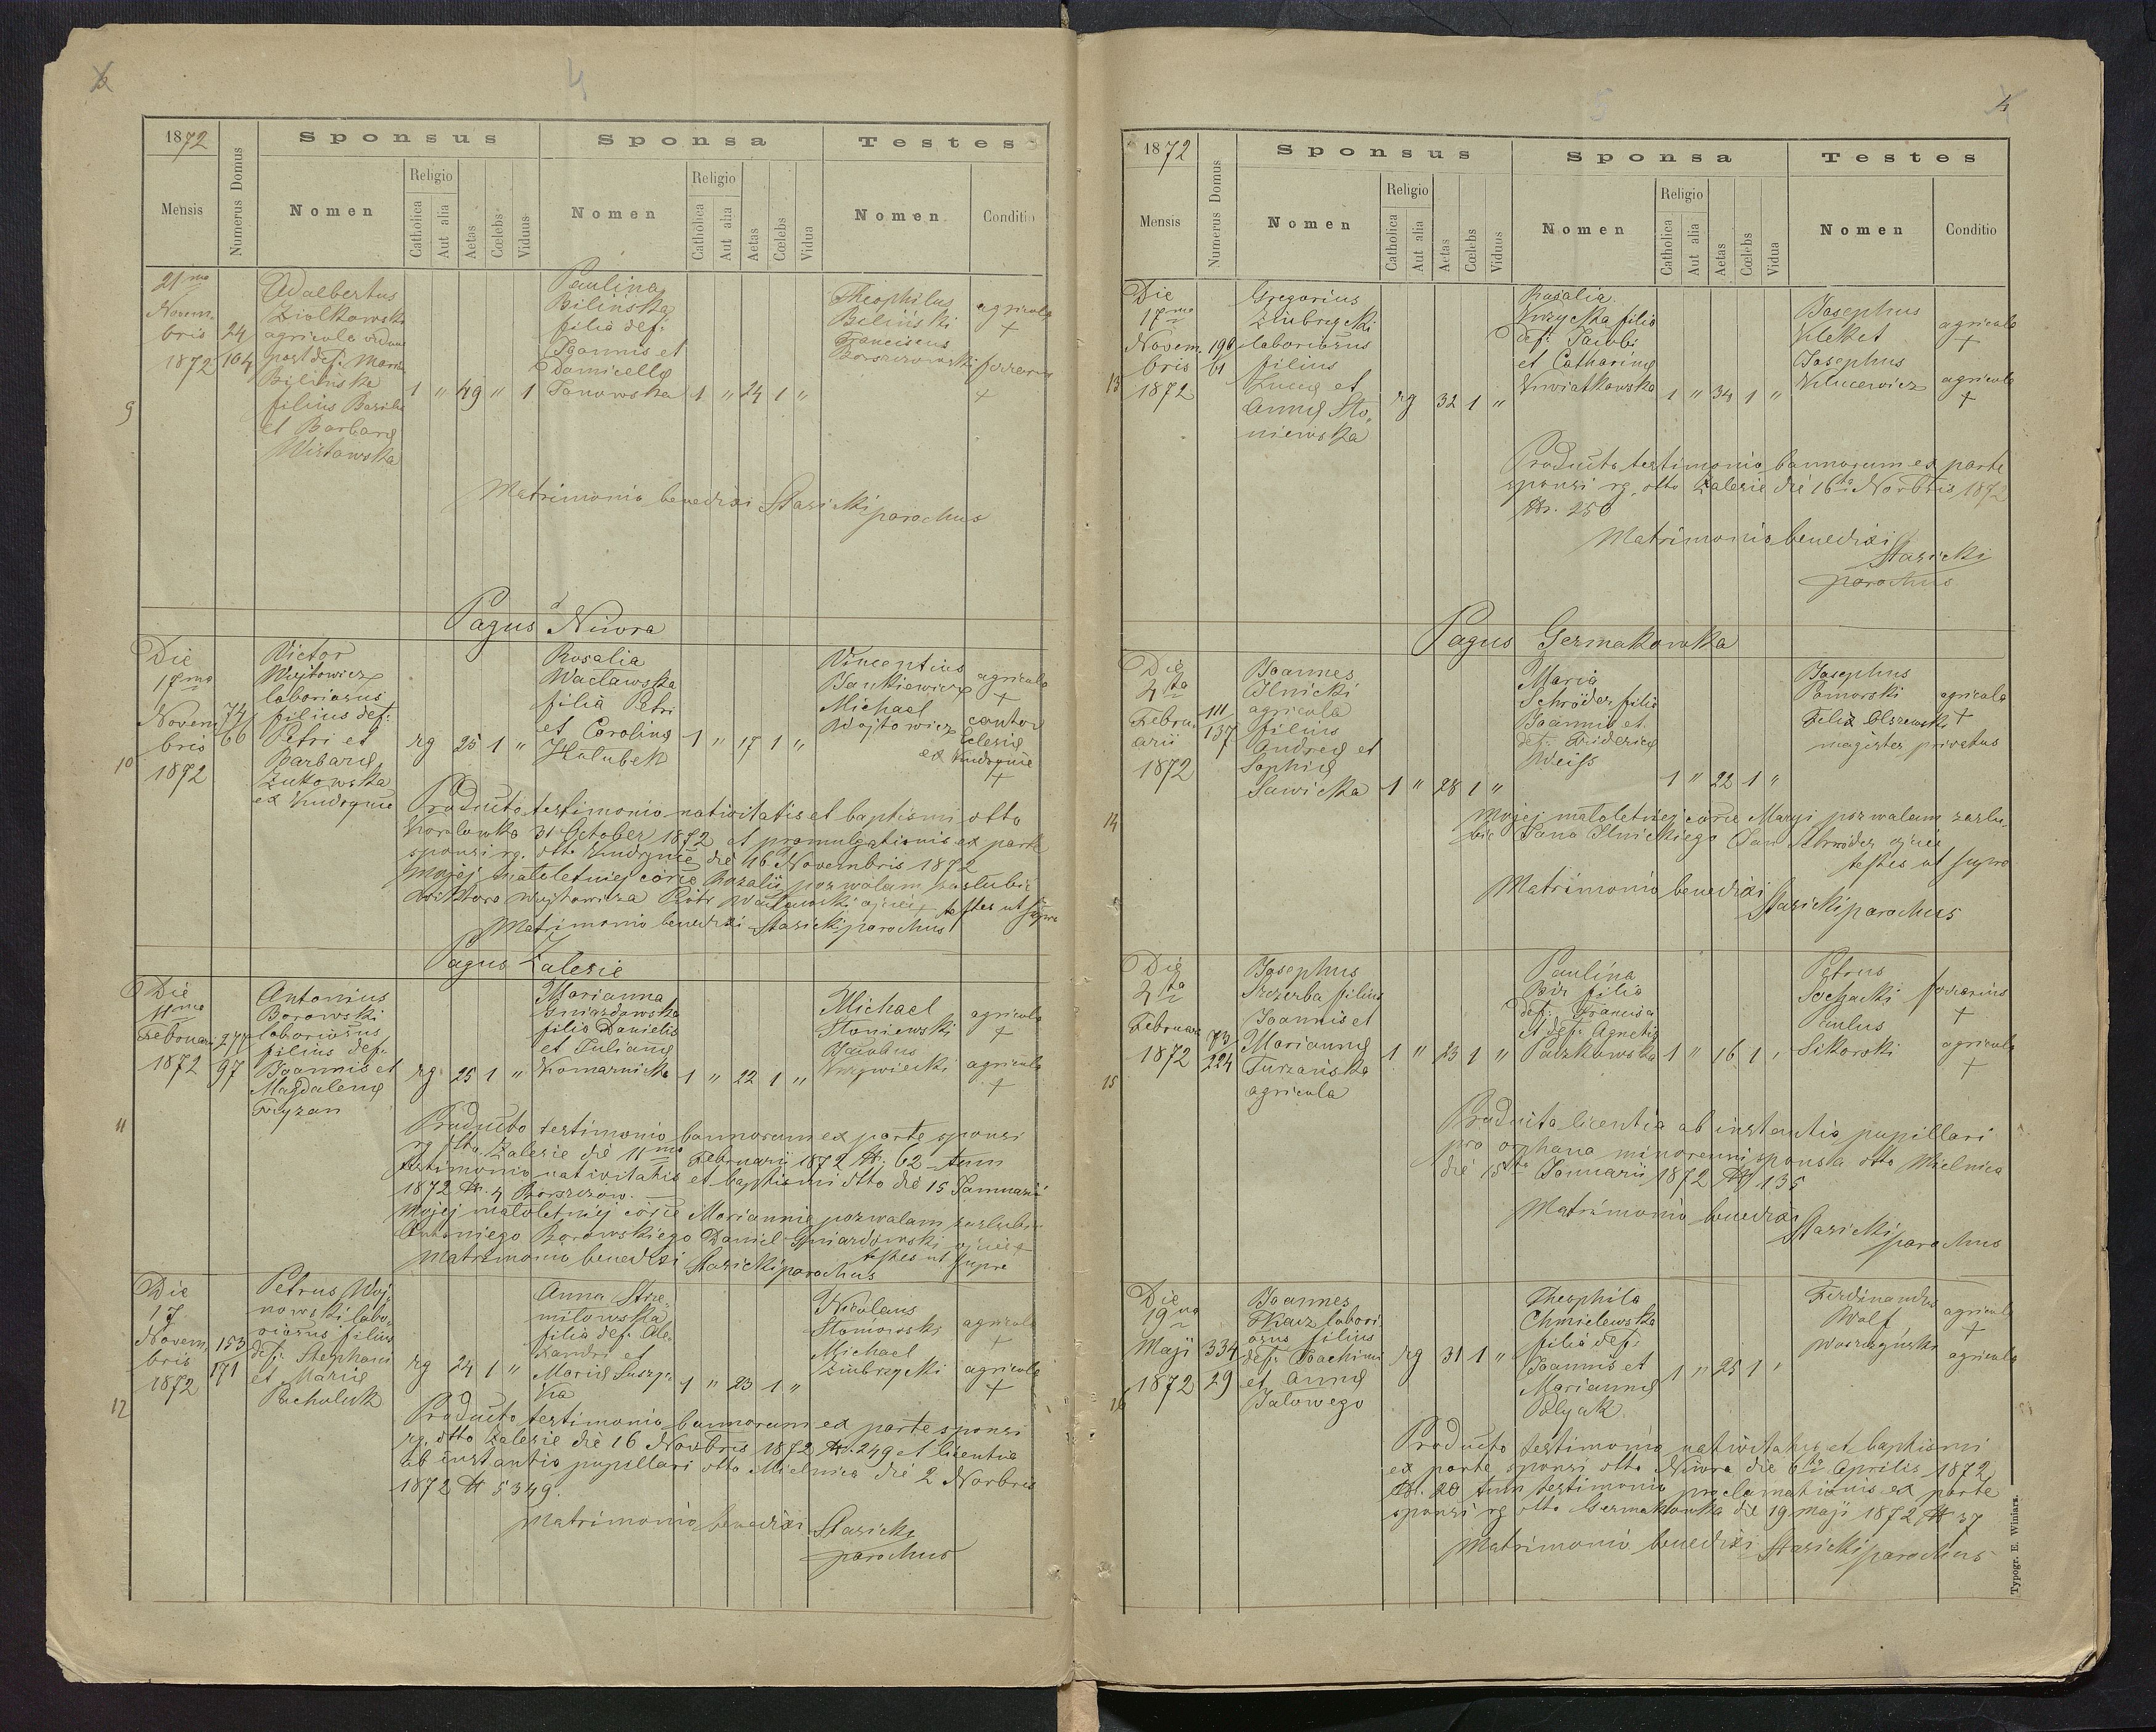 4
1872
Sponsus
Sponsa
Testes
Mensis
Numerus Domus
Nomen
Religio
Catholica
Aut alia
Aetas
Cœlebs
Viduus
Nomen
Religio
Catholica
Aut alia
Aetas
Cœlebs
Vidua
Nomen
Conditio
9
21mo
Novem.
bris
1872
24
104
Adalbertus
Ziolkowski
agricola viduus
post def: Maria
Bilińska
filius Basilii
et Barbarę
Wisłowska
1 " 49 " 1
Paulina
Bilińska
filia def:
Joannis et
Domicellę
Janowska
1 " 24 1 "
Theophilus
Biliński
Franciscus
Borszczowski
agricola
+
+
Matrimonio benedixi Stasicki parochus
Pagus Niwra
10
Die
17mo
Novem
bris
1872
74
66
Victor
Wojtowicz
laboriosus
filius def:
Petri et
Barbarę
Zukowska
ex Kudrynce
rg 25 1 "
Rosalia
Waclawska
filia Petri
et Carolinę
Holubek
1 " 17 1 "
Vincentius
Jankiewicz
Michael
Wojtowicz
agricola
+
cantor
Eclesię
ex Kudrynce
+
Producto testimonio nativitatis et baptismi dtto
Korolowka 31 October 1872 et promulgationis ex parte
sponsi rg. dtto Kudrynce die 16 Novembris 1872
Mojej małoletniej córce Rozalii pozwalam zaslubić
Wiktora Wojtowicza Piotr Waclawski ojciec testes ut supra
Matrimonio benedixi Stasicki parochus
Pagus Zalesie
11
Die
11mo
Februarii
1872
277
97
Antonius
Borowski
laboriosus
filius def:
Joannis et
Magdalenę
Fryzan
rg 25 1 "
Marianna
Gniazdowska
filia Danielis
et Julianę
Komarnicka
1 " 22 1 "
Michael
Stoniewski
Jacobus
Krzywiecki
agricola
+
agricola
+
Producto testimonio bannorum ex parte sponsi
rg dtto Zalesie die 11mo Februarii 1872 N. 62 tum
testimonio nativitatis et baptismi dtto die 15 Januarii
1872 N. 4 Borszczow.
Mojej małoletniej córce Mariannie pozwalam zaslubić
Antoniego Borowskiego Daniel Gniazdowski ojciec
testes ut supra
Matrimonio benedixi Stasicki parochus
12
Die
17
Novem
bris
1872
153
171
Petrus Woj,
nowski labo,
riosus filius
def: Stephani
et Marię
Pacholuk
rg 24 1 "
Anna Strze,
milowska
filia def: Ale,
xandri et
Marię
1 " 23 1 "
Nicolaus
Stoniowski
Michael
Zimbrzycki
agricola
+
agricola
+
Producto testimonio bannorum ex parte sponsi
rg. dtto Zalesie die 16 Novbris 1872 N. 249 et licentia
ab instantia pupillari dtto Mielnica die 2 Novbris
1872 N 5349.
Matrimonio benedixi Stasicki
parochus
5
4
1872
Sponsus
Sponsa
Testes
Mensis
Numerus Domus
Nomen
Religio
Catholica
Aut alia
Aetas
Cœlebs
Viduus
Nomen
Religio
Catholica
Aut alia
Aetas
Cœlebs
Vidua
Nomen
Conditio
13
Die
17mo
Novem.
bris
1872
190
61
Gregorius
Zimbrzycki
laboriosus
filius
Lucę et
Annę Sto,
niewska
rg 32 1 "
Rosalia
Krzycka filia
def: Jacobi
et Catharinę
Kwiatkowska
1 " 34 1 "
Josephus
Kleket
Josephus
Klucewicz
agricola
+
agricola
+
Producto testimonio bannorum ex parte
sponsi rg. dtto Zalesie die 16to Novbris 1872
Nr. 250
Matrimonio benedixi
Stasicki
parochus
Pagus Germakowka
14
Die
4ta
Febru,
arii
1872
111
137
Joannes
Ilnicki
agricola
filius
Andreę et
Sophię
Sawicka
1 " 28 1 "
Maria
Schröder filia
Joannis et
def: Fridericę
Weiss
1 " 22 1 "
Josephus
Pomorski
Felix Olszewski
magister privatus
agricola
+
Mojej małoletniej córce Maryi pozwalam zaslu,
bić Jana Ilnickiego Jan Schröder ojciec
testes ut supra
Matrimonio benedixi
Stasicki parochus
15
Die
4ta
Februar
1872
73
224
Josephus
Szczerba filius
Joannis et
Mariannę
Turzańska
agricola
1 " 23 1 "
Paulina
Bir filia
def: Francisci
et def: Agnetis
Palzkowska
1 " 16 1 "
Petrus
Sochacki
Paulus
Sikorski
+
agricola
+
Producta licentia ab instantia pupillari
pro orphana minorenni sponsa dtto Mielnica
die 15ta Januarii 1872 N 135
Matrimonio benedixi
Stasicki
parochus
16
Die
19na
Maji
1872
334
29
Joannes
Tkacz labori
osus filius
def: Joachimi
et Annę
Jalowego
rg 31 1 "
Theophila
Chmielewska
filia def:
Joannis et
Mariannę
Polyak
1 " 25 1 "
Ferdinandus
Wolf
agricola
+
agricola
Producto testimonio nativitatis et baptismi
ex parte sponsi dtto Niwra die 6ta Aprilis 1872
N. 20 tum testimonio proclamationis ex parte
sponsi rg dtto Germakowka die 19 Maji 1872 N 37
Matrimonio benedixi Stasicki parochus
Typogr. E. Winiarz.